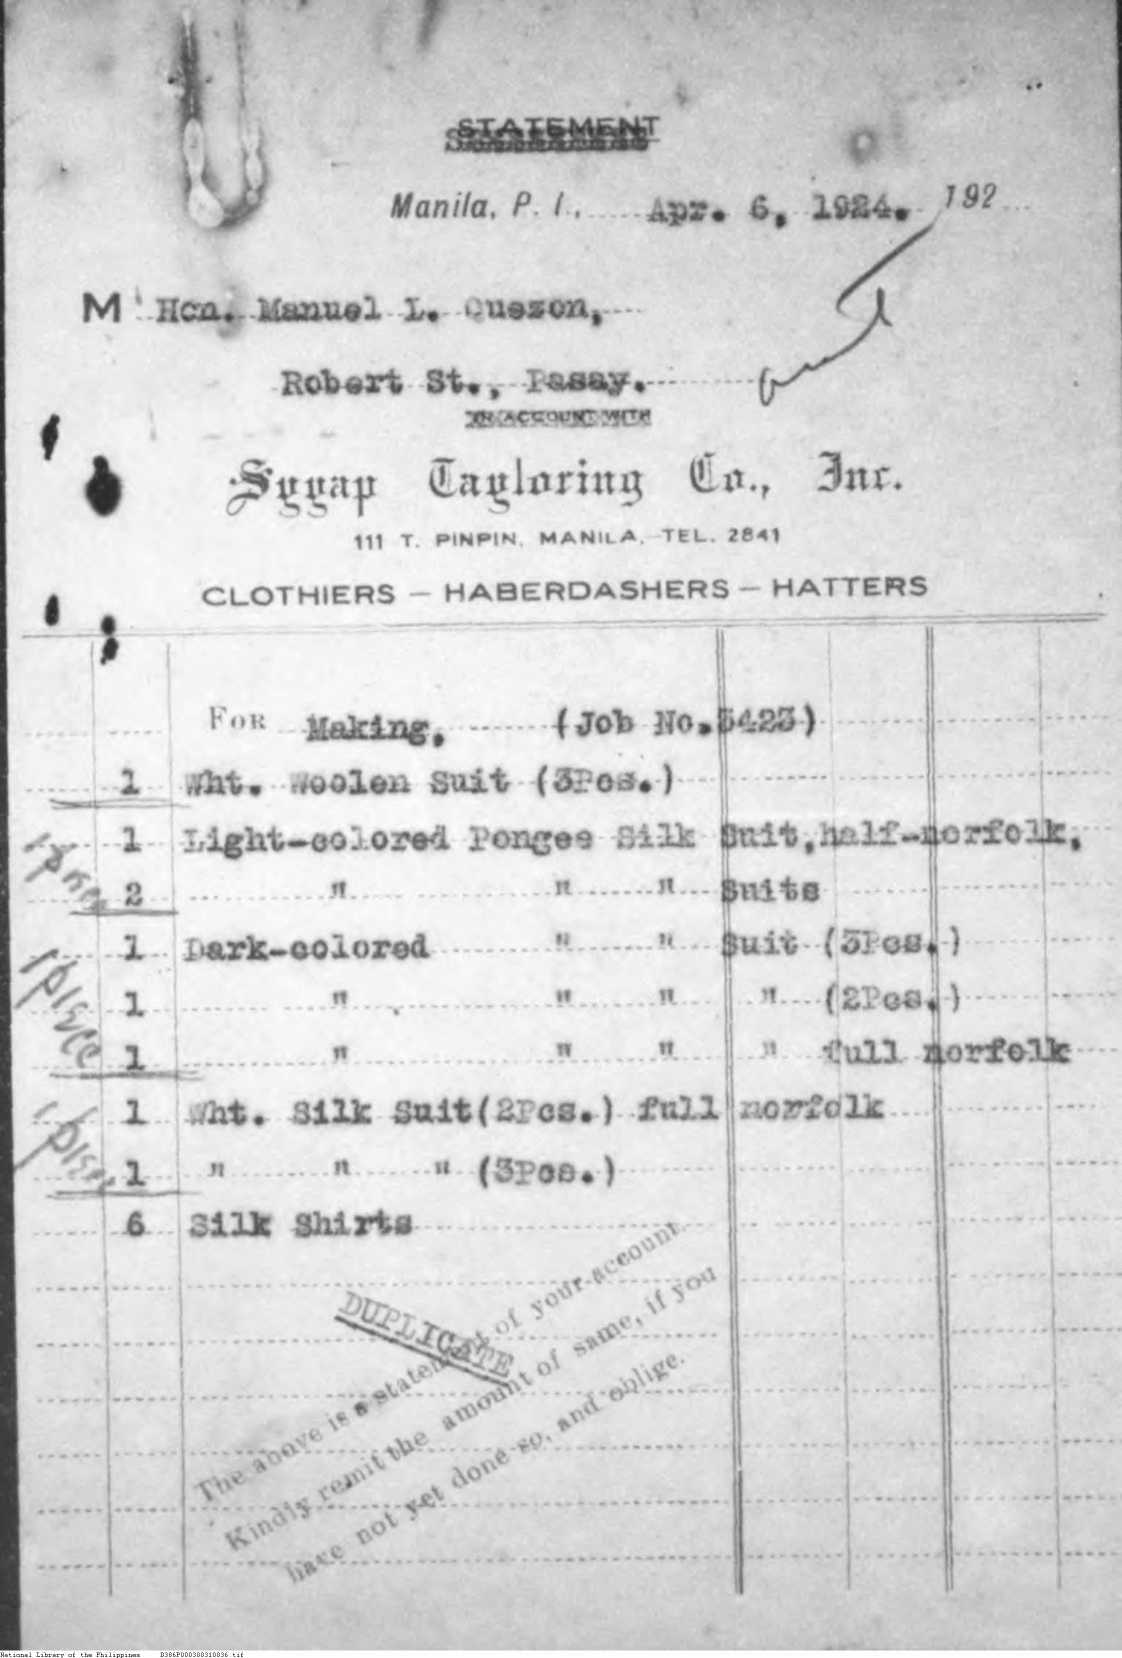 STATEMENT
Manila, P. I., Apr. 6, 1924. 192
M Hon. Manuel L. Quezon,
Robert St., Pasay.
IN ACCOUNT WITH
Syyap Tayloring Co., Inc.
111 T. PINPIN, MANILA, TEL. 2841
CLOTHIERS — HABERDASHERS — HATTERS
FOR Making, (Job No.3423)
1 Wht. Woolen Suit (3Pcs.)
1 Light-colored Pongee Silk Suit,half-norfolk,
2 " " " Suits
1 Dark-colored " " Suit (3Pcs.)
1 piece
1 " " " " (2Pcs.)
1 " " " " full norfolk
1 Wht. Silk Suit(2Pcs.) full norfolk
1 " " " (3Pcs.)
6 Silk Shirts
DUPLICATE
The above is a statement of your account.
Kindly remit the amount of same, if you
have not yet done so, and oblige.
National Library of the Philippines D386P000388310836.tif